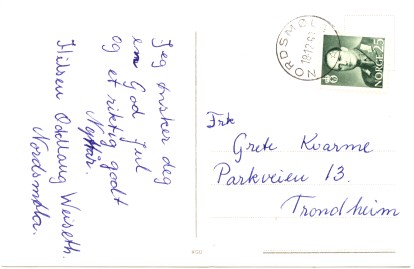 Jeg ønsker deg
en God Jul
og et riktig godt
Nyttår.
Hilsen Oddlaug Weiseth.
Nordsmøla.
NORDSMØLA
NORGE 25
Frk
Grete Kvarme
Parkveien 13.
Trondheim